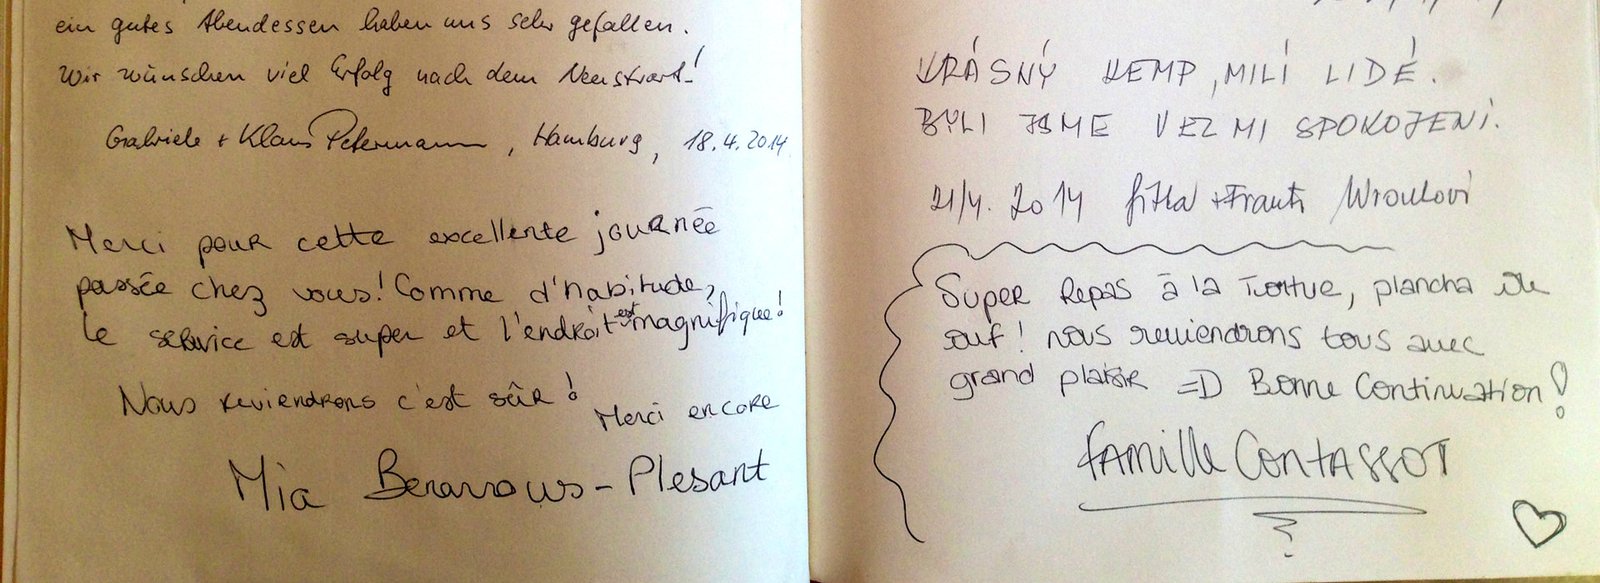 ein gutes Abendessen haben uns sehr gefallen.
Wir wünschen viel Erfolg nach dem Neustart!
Gabriele + Klaus Petermann, Hamburg, 18.4.2014
Merci pour cette excellente journée
passée chez vous! Comme d'habitude,
le service est super et l'endroit est magnifique!
Nous reviendrons c'est sûr!
Merci encore
Mia Plesant
KRÁSNÝ KEMP, MILÍ LIDÉ.
BYLI JSME VELMI SPOKOJENI.
21/4. 2014 Jitka + Frant.
Super Repas à la Tortue, plancha de
ouf! nous reviendrons tous avec
grand plaisir =D Bonne Continuation!
Famille Contassot